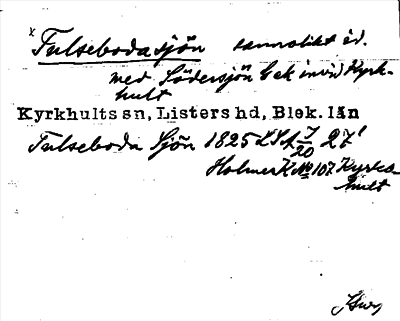 x Fulsebodasjön sannolikt id.
med Södersjön Gek invid Kyrk-
hult
Kyrkhults sn, Listers hd, Blek. län
Fulseboda Sjön 1825 LSA 7/20 27'
Holmer K No 107 Kyrko
hult